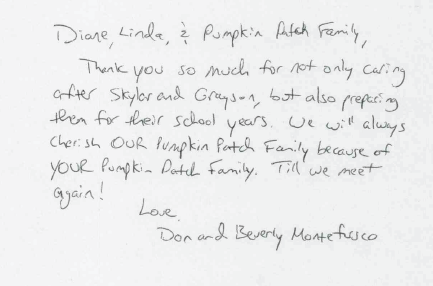 Diane, Linda, & Pumpkin Patch Family,
Thank you so much for not only caring
after Skylar and Grayson, but also preparing
them for their school years. We will always
cherish OUR Pumpkin Patch Family because of
YOUR Pumpkin Patch Family. Till we meet
again!
Love,
Don and Beverly Montefusco